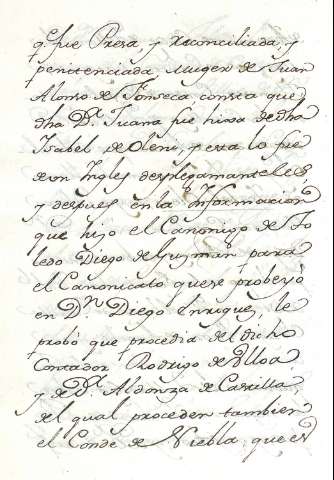 q.e fue Presa, y reconciliada, y
penitenciada Muger de Juan
Alonso de Fonseca consta que
dha D.a Juana fue hixa de dha
Isabel de Oleni, y esta lo fue
de un Ingles
y despues en la Informacion
que hijo el Canonigo de To
ledo Diego de Guzman para
el Canonicato que se probeyò
en D.n Diego Enriquez, le
probò que procedia del dicho
Contador Rodrigo de Ulloa
y de D.a Aldonza de Castilla,
del qual proceden tambien
el Conde de Niebla, que es